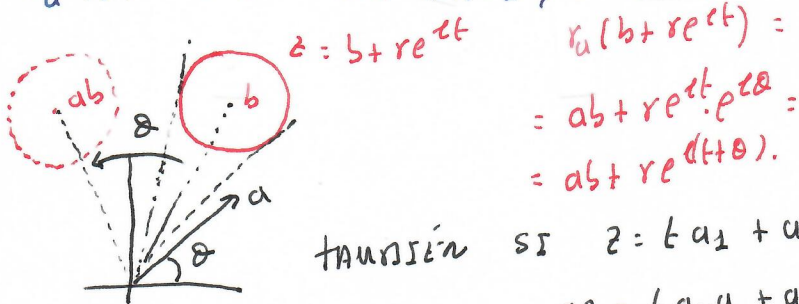 z = b + re^{it}
r_a(b + re^{it}) =
= ab + re^{it}·e^{iθ} =
= ab + re^{i(t+θ)}.
ab
b
θ
a
θ
TAMBIÉN SI z = t a_1 + a